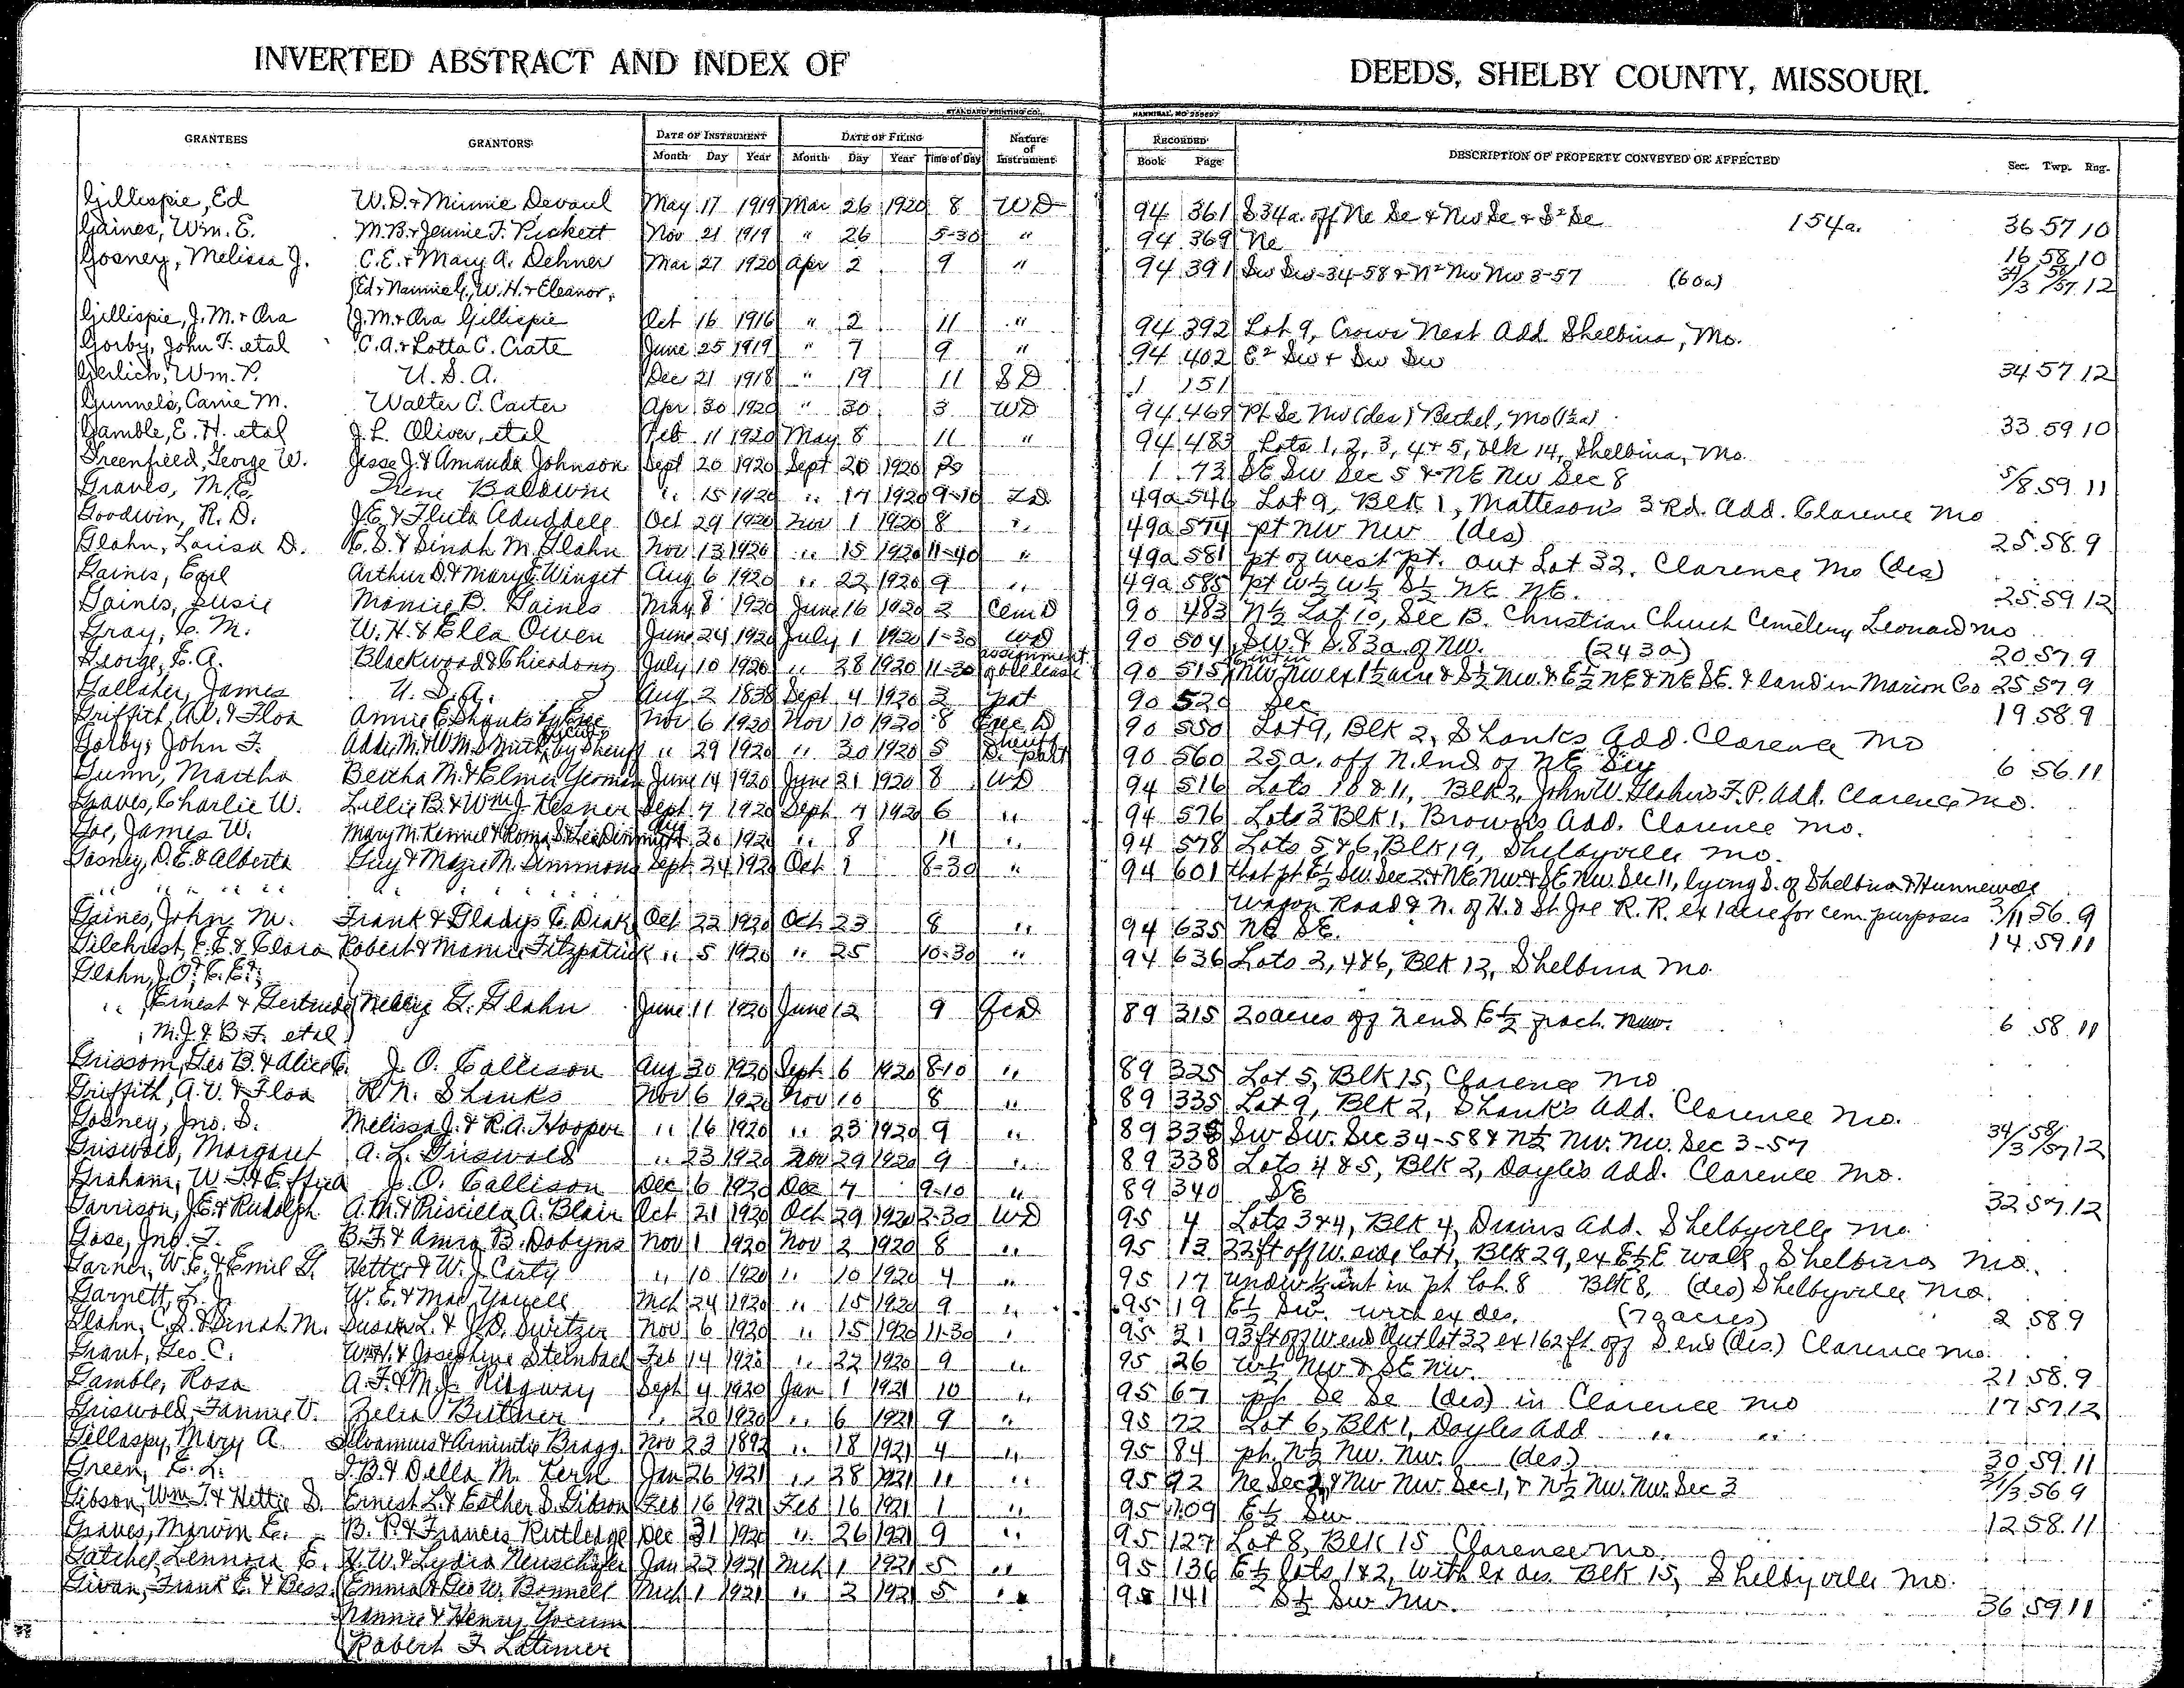 INVERTED ABSTRACT AND INDEX OF DEEDS, SHELBY COUNTY, MISSOURI.
STANDARD PRINTING CO., HANNIBAL, MO
GRANTEES GRANTORS DATE OF INSTRUMENT DATE OF FILING Nature of Instrument RECORDED DESCRIPTION OF PROPERTY CONVEYED OR AFFECTED Sec. Twp. Rng.
Month Day Year Month Day Year Time of Day Book Page
Gillespie, Ed W.D. & Minnie Devaul May 17 1919 Mar 26 1920 8 WD 94 361 S 34a. off Ne Se & Nw Se & S² Se 154a. 36 57 10
Gaines, Wm. E. M.B. & Jennie T. Pickett Nov 21 1919 " 26 5-30 " 94 369 Ne 16 58 10
Gosney, Melissa J. C.E. & Mary A. Dehner Mar 27 1920 Apr 2 9 " 94 391 Sw Sw-34-58 & N² Nw Nw 3-57 (60a) 34/3 58/57 12
Ed & Nannie G., W.H. & Eleanor,
Gillispie, J.M. & Ora J.M. & Ora Gillispie Oct 16 1916 " 2 11 " 94 392 Lot 9, Crows Nest Add Shelbina, Mo.
Gorby, John F. etal C.A. & Lotta C. Crate June 25 1919 " 7 9 " 94 402 E² Sw & Sw Sw 34 57 12
Gerlich, Wm. P. U.S.A. Dec 21 1918 " 19 11 SD 1 151
Gunnels, Carrie M. Walter C. Carter Apr 30 1920 " 30 3 WD 94 469 Pt Se Nw (des) Bethel, Mo (1½a) 33 59 10
Gamble, E.H. etal J.L. Oliver, etal Feb 11 1920 May 8 11 " 94 483 Lots 1, 2, 3, 4 & 5, blk 14, Shelbina, Mo.
Greenfield, George W. Jesse J. & Amanda Johnson Sept 20 1920 Sept 20 1920 1 73 SE SW Sec 5 & NE NW Sec 8 5/8 59 11
Graves, M.E. Irene Baldwin " 15 1920 " 17 1920 9-10 49a 546 Lot 9, Blk 1, Matteson's 3rd. Add. Clarence Mo
Goodwin, R.D. J.E. & Fluta Aduddell Oct 29 1920 Nov 1 1920 8 " 49a 574 pt NW NW (des) 25 58 9
Glahn, Louisa D. C.S. & Dinah M. Glahn Nov 13 1920 " 15 1920 11-40 " 49a 581 pt of west pt. Out Lot 32, Clarence Mo (des)
Gaines, Earl Arthur D. & Mary E. Winget Aug 6 1920 " 22 1920 9 " 49a 585 pt W½ W½ S½ NE NE. 25 59 12
Gaines, Susie Mamie B. Gaines May 8 1920 June 16 1920 2 Cem D 90 483 N½ Lot 10, Sec B. Christian Church Cemetery Leonard Mo
Gray, C.M. W.H. & Ella Owen June 24 1920 July 1 1920 1-30 WD 90 504 SW. & S. 83a. of NW. (243a) 20 57 9
George, E.A. Blackwood & July 10 1920 " 28 1920 11-30 assignment of lease 90 515 NW NW ex 1½ acre & S½ NW. & E½ NE & NE SE. & land in Marion Co 25 57 9
Gallaher, James U.S.A. Aug 2 1838 Sept 4 1920 2 Pat 90 520 Sec 19 58 9
Griffith, A.V. & Floa Annie E. Shanks by Exec Nov 6 1920 Nov 10 1920 8 Exec D 90 550 Lot 9, Blk 2, Shanks Add. Clarence Mo
Gorby, John F. Addie M. & W.M. Smith by Sheriff " 29 1920 " 30 1920 5 Sheriff D. part 90 560 25a. off N. end of NE 6 56 11
Gunn, Martha Bertha M. & Elmer June 14 1920 June 21 1920 8 WD 94 516 Lots 10 & 11, Blk 2, John W. Glahn's F.P. Add. Clarence Mo.
Graves, Charlie W. Lillie B. & Wm J. Kesner Sept 7 1920 Sept 7 1920 6 " 94 576 Lots 3 Blk 1, Brown's Add. Clarence Mo.
Goe, James W. Mary M. 20 1920 " 8 11 " 94 578 Lots 5 & 6, Blk 19, Shelbyville Mo.
Gosney, D.E. & Alberta Guy & Mazie M. Ammons Sept 24 1920 Oct 1 8-30 " 94 601 that pt E½ SW Sec 2 & NE NW. & SE NW. Sec 11, lying S. of Shelbina & Hunnewell
" " " " " Wagon Road & N. of H. & St. Joe R.R. ex 1 acre for cem. purposes 2/11 56 9
Gaines, John M. Frank & Gladys E. Oct 22 1920 Oct 23 8 " 94 635 NE SE. 14 59 11
Gilchrist, E.E. & Clara Robert & Mamie Fitzpatrick " 5 1920 " 25 10-30 " 94 636 Lots 2, 4 & 6, Blk 12, Shelbina Mo.
Glahn, J.O. & E.E.,
" Ernest & Gertrude Nellie G. Glahn June 11 1920 June 12 9 QcD 89 315 20 acres off N end E½ frach. NW. 6 58 11
" M.J. & B.F. etal
Grissom, Geo B. & Alice C. J.O. Callison Aug 30 1920 Sept 6 1920 8-10 " 89 325 Lot 5, Blk 15, Clarence Mo
Griffith, A.V. & Floa R.N. Shanks Nov 6 1920 Nov 10 8 " 89 335 Lot 9, Blk 2, Shank's Add. Clarence Mo.
Gosney, Jno. S. Melissa J. & R.A. Hooper " 16 1920 " 23 1920 9 " 89 335 SW SW. Sec 34-58 & N½ NW. NW. Sec 3-57 34/3 58/57 12
Griswold, Margaret A.L. Griswold " 23 1920 Nov 29 1920 9 " 89 338 Lots 4 & 5, Blk 2, Doyle's Add. Clarence Mo.
Graham, W.T. & Effie J.O. Callison Dec 6 1920 Dec 7 9-10 " 89 340 SE 32 57 12
Garrison, J.E. & Rudolph A.M. & Priscilla A. Blair Oct 21 1920 Oct 29 1920 2-30 WD 95 4 Lots 3 & 4, Blk 4, Drains Add. Shelbyville Mo
Gose, Jno. T. B.F. & Amra B. Dobyns Nov 1 1920 Nov 2 1920 8 " 95 13 22 ft off W. side lot 1, Blk 29, ex E½ E wall, Shelbina Mo.
Garner, W.E. & Emil G. Hettie & W.J. Carty " 10 1920 " 10 1920 4 " 95 17 undiv ½ int in pt lot 8 Blk 8, (des) Shelbyville Mo.
Garnett, L.J. W.E. & Mae Yowell Mch 24 1920 " 15 1920 9 " 95 19 E½ SW. with ex des. (79 acres) 2 58 9
Glahn, C.S. & Dinah M. Susan L. & J.D. Switzer Nov 6 1920 " 15 1920 11-30 " 95 21 93 ft off W end Out lot 32 ex 162 ft. off S. end (des.) Clarence Mo.
Grant, Geo C. Wm. H. & Josephine Steinbach Feb 14 1920 " 22 1920 9 " 95 26 W½ NW & SE NW. 21 58 9
Gamble, Rosa A.F. & M.J. Ridgway Sept 4 1920 Jan 1 1921 10 " 95 67 pt Se Se (des) in Clarence Mo 17 57 12
Griswold, Fannie V. Zelia Butner " 20 1920 " 6 1921 9 " 95 72 Lot 6, Blk 1, Doyles Add " "
Gillaspy, Mary A. Silvamus & Araminta Bragg Nov 23 1892 " 18 1921 4 " 95 84 pt. N½ NW. NW. (des) 30 59 11
Green, E.L. J.B. & Della M. Kern Jan 26 1921 " 28 1921 11 " 95 92 Ne Sec 2, & NW NW. Sec 1, & N½ NW. NW. Sec 3 56 9
Gibson, Wm T. & Hettie D. Ernest L. & Esther D. Gibson Feb 16 1921 Feb 16 1921 1 " 95 109 E½ SW 12 58 11
Graves, Marvin E. B.P. & Frances Rutledge Dec 31 1920 " 26 1921 9 " 95 127 Lot 8, Blk 15 Clarence Mo.
Gatchel, Lennora E. H.W. & Lydia Neuschafer Jan 22 1921 Mch 1 1921 5 " 95 136 E½ lots 1 & 2, with ex des. Blk 15, Shelbyville Mo.
Givan, Frank E. & Bess Emma & Geo W. Bonnell Mch 1 1921 " 2 1921 5 " 95 141 S½ SW NW. 36 59 11
Nannie & Henry Yocum
Robert F. Latimer